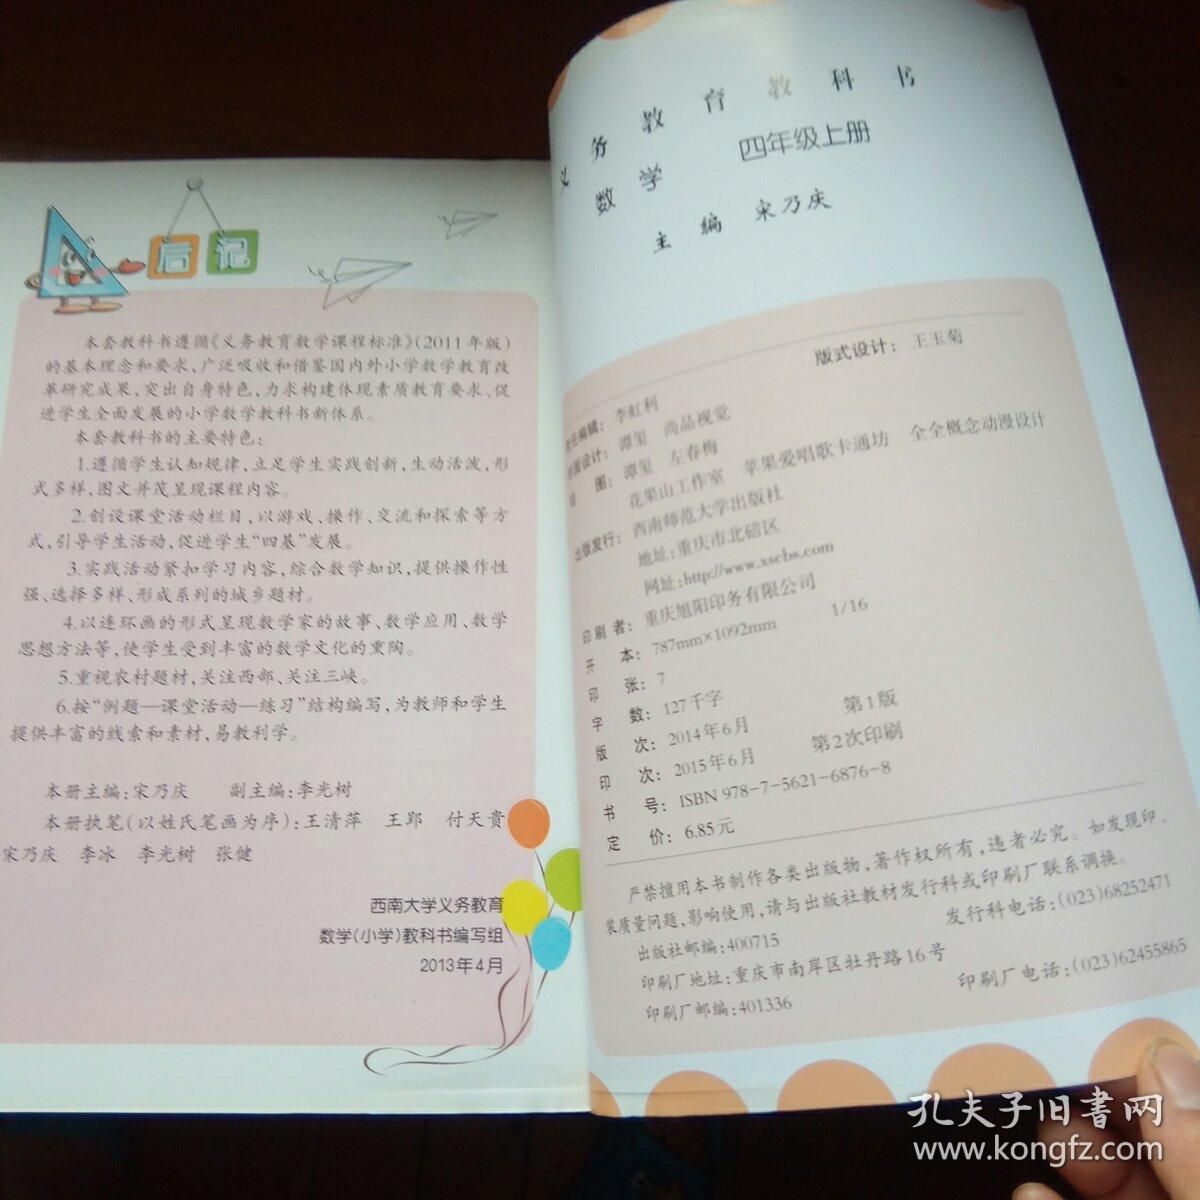 后记
本套教科书遵循《义务教育数学课程标准》(2011年版)
的基本理念和要求,广泛吸收和借鉴国内外小学数学教育改
革研究成果,突出自身特色,力求构建体现素质教育要求、促
进学生全面发展的小学数学教科书新体系。
本套教科书的主要特色:
1.遵循学生认知规律,立足学生实践创新,生动活泼,形
式多样,图文并茂呈现课程内容。
2.创设课堂活动栏目,以游戏、操作、交流和探索等方
式,引导学生活动,促进学生“四基”发展。
3.实践活动紧扣学习内容,综合数学知识,提供操作性
强、选择多样、形成系列的城乡题材。
4.以连环画的形式呈现数学家的故事、数学应用、数学
思想方法等,使学生受到丰富的数学文化的熏陶。
5.重视农村题材,关注西部、关注三峡。
6.按“例题—课堂活动—练习”结构编写,为教师和学生
提供丰富的线索和素材,易教利学。
本册主编:宋乃庆 副主编:李光树
本册执笔(以姓氏笔画为序):王清萍 王郢 付天贵
宋乃庆 李冰 李光树 张健
西南大学义务教育
数学(小学)教科书编写组
2013年4月
义务教育教科书
数学 四年级上册
主编 宋乃庆
责任编辑: 李虹利 版式设计: 王玉菊
封面设计: 谭玺 尚品视觉
插图: 谭玺 左春梅
花果山工作室 苹果爱唱歌卡通坊 全全概念动漫设计
出版发行: 西南师范大学出版社
地址:重庆市北碚区
网址:http://www.xscbs.com
印刷者: 重庆旭阳印务有限公司
开本: 787mm×1092mm 1/16
印张: 7
字数: 127千字
版次: 2014年6月 第1版
印次: 2015年6月 第2次印刷
书号: ISBN 978-7-5621-6876-8
定价: 6.85元
严禁擅用本书制作各类出版物,著作权所有,违者必究。如发现印、
装质量问题,影响使用,请与出版社教材发行科或印刷厂联系调换。
出版社邮编:400715 发行科电话:(023)68252471
印刷厂地址:重庆市南岸区牡丹路16号
印刷厂邮编:401336 印刷厂电话:(023)62455865
孔夫子旧书网
www.kongfz.com